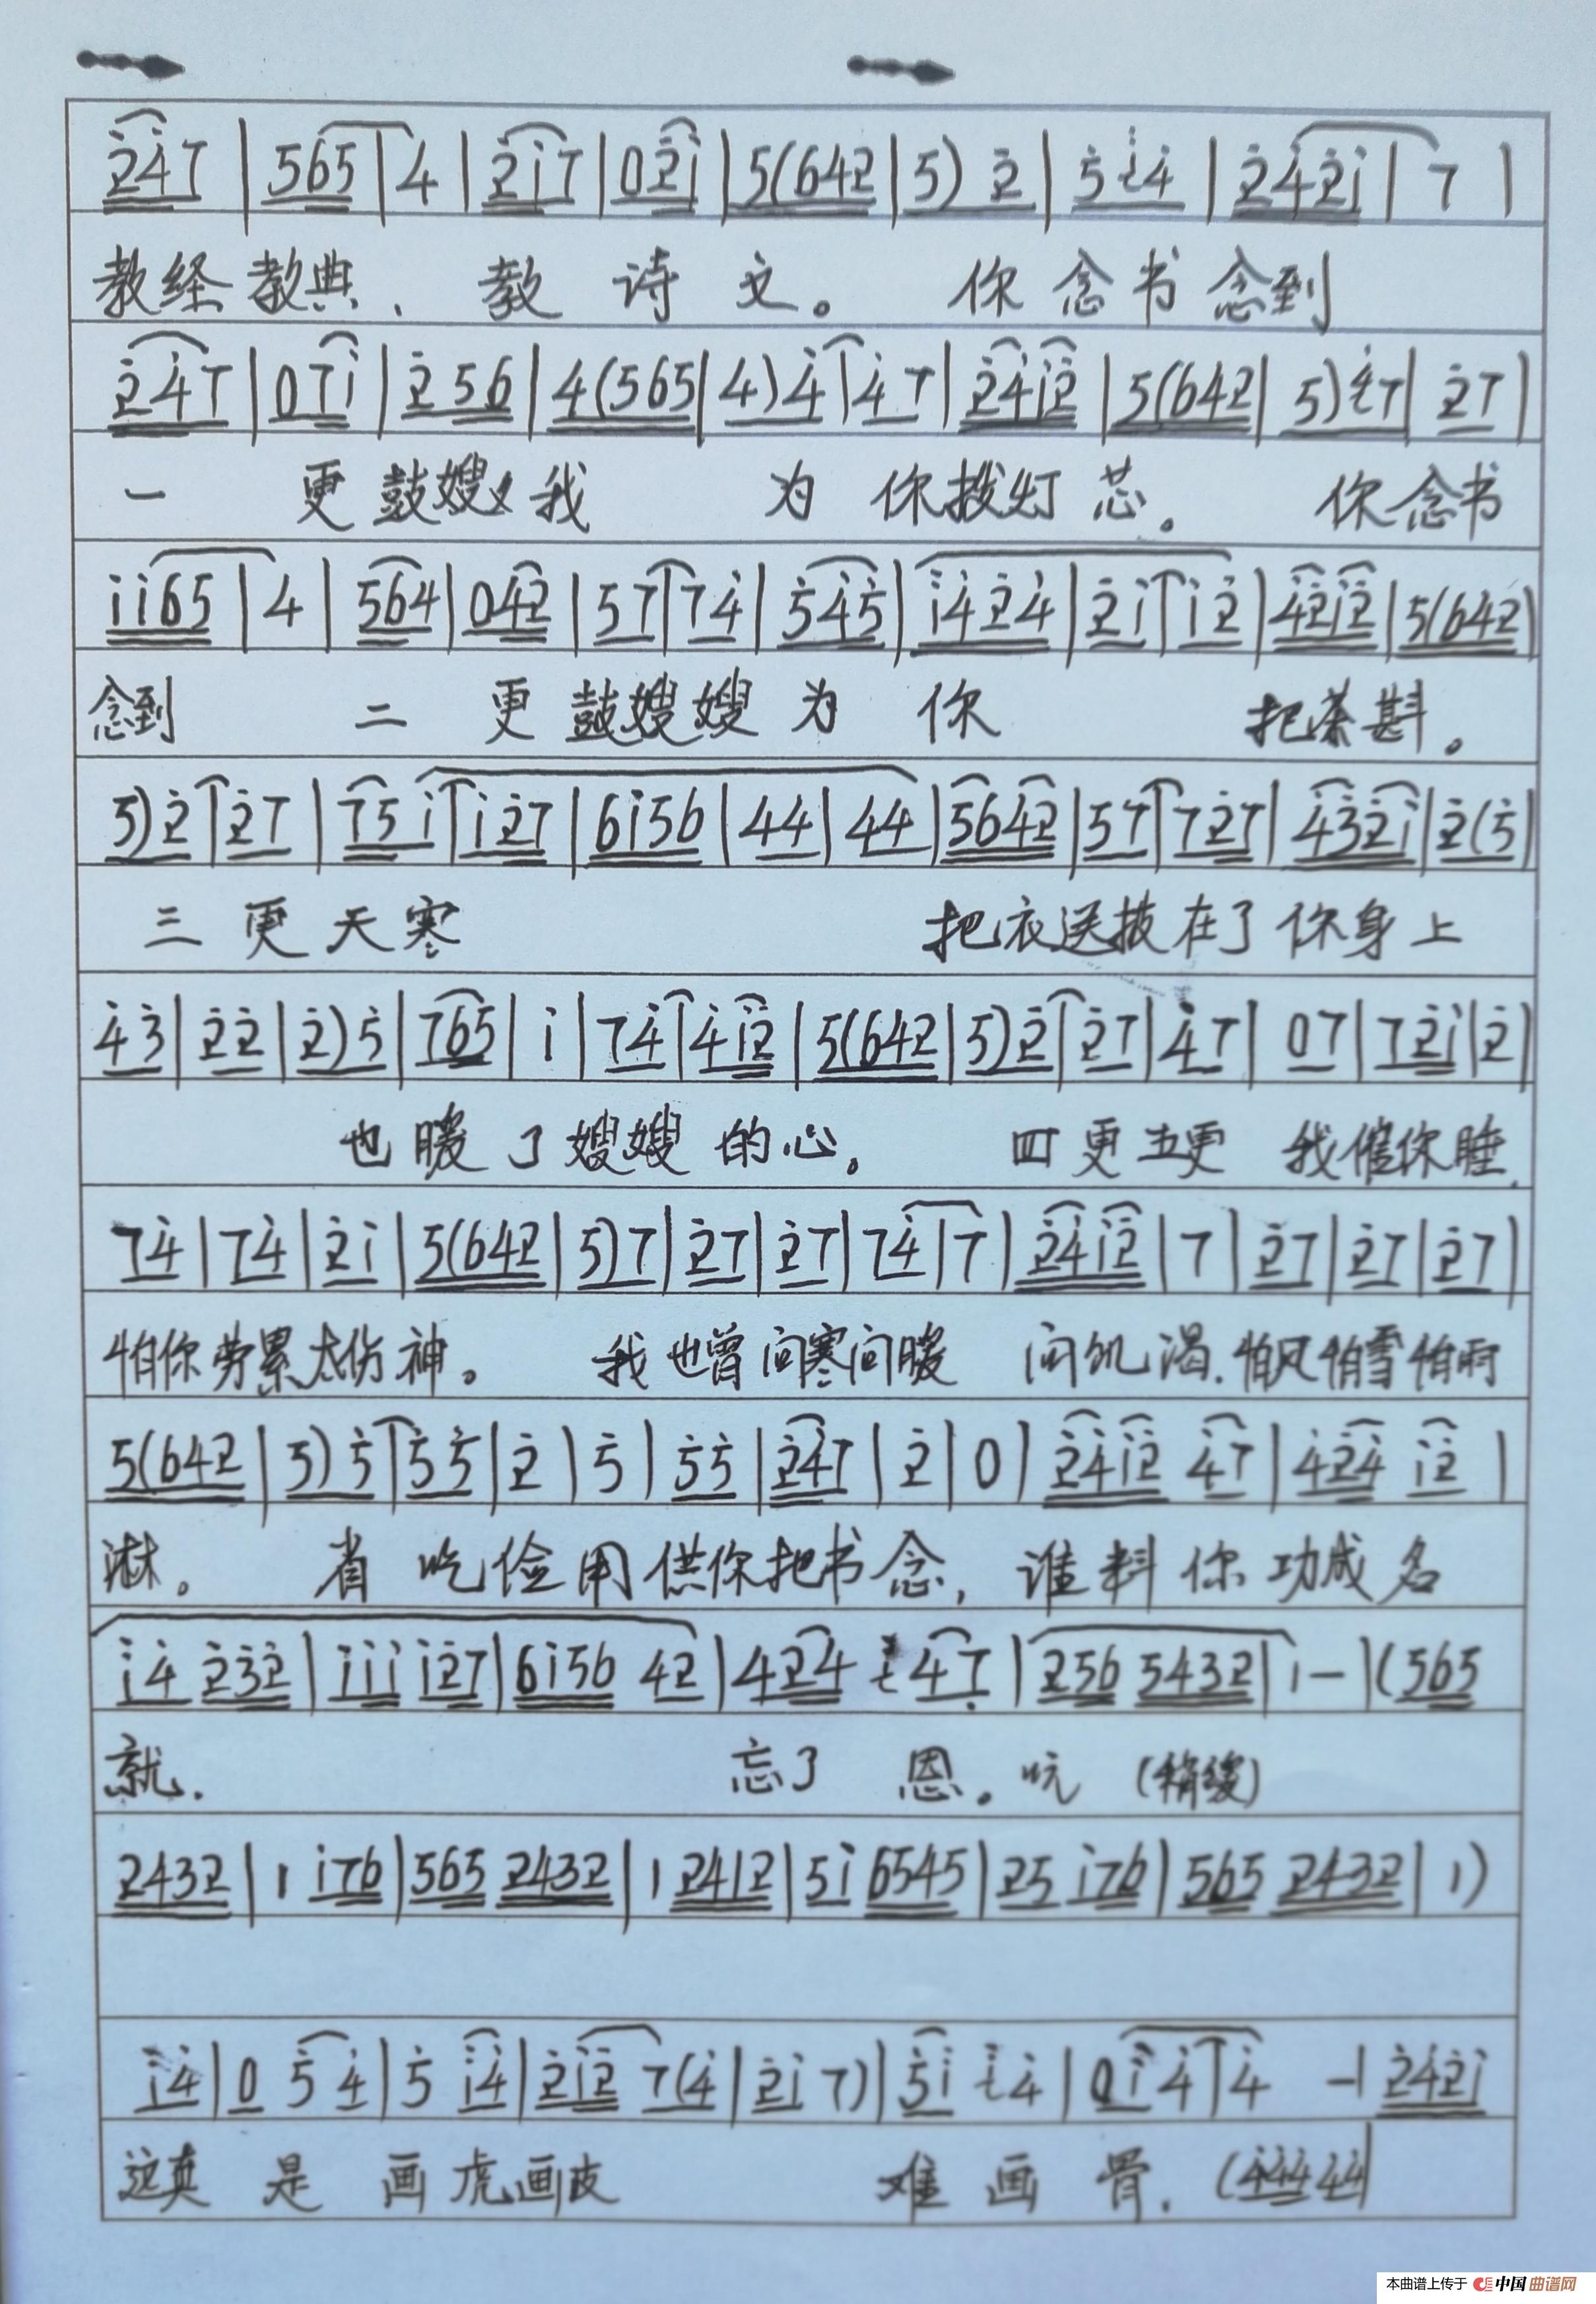 2̇4̇7 | 565 | 4 | 2̇i7 | 02̇i | 5(642 | 5) 2̇ | 5̇ i4̇ | 2̇4̇2̇i | 7 |
教经教典、教诗文。你念书念到
2̇4̇7 | 07i | 2̇56 | 4(565 | 4)4̇ | 4̇7 | 2̇4̇i2̇ | 5(642 | 5)4̇7 | 2̇7 |
一更鼓嫂嫂我为你拨灯芯。你念书
ii65 | 4 | 564 | 04̇2̇ | 57 | 74̇ | 5̇4̇5̇ | i4̇2̇4̇ | 2̇i | i2̇ | 4̇2̇i2̇ | 5(642)
念到二更鼓嫂嫂为你把茶斟。
5)2̇ | 2̇7 | 75i | i2̇7 | 6i56 | 44 | 44 | 5642 | 57 | 72̇7 | 4̇3̇2̇i | 2̇(5̇ |
三更天寒把衣送披在了你身上
4̇3̇ | 2̇2̇ | 2̇)5̇ | 765 | i | 74̇ | 4̇i2̇ | 5(642 | 5)2̇ | 2̇7 | 4̇7 | 07 | 72̇i | 2̇ |
也暖了嫂嫂的心。四更五更我催你睡.
74̇ | 74̇ | 2̇i | 5(642 | 5)7 | 2̇7 | 2̇7 | 74̇ | 7 | 2̇4̇i2̇ | 7 | 2̇7 | 2̇7 | 2̇7 |
怕你劳累太伤神。我也曾问寒问暖问饥渴.怕风怕雪怕雨
5(642 | 5)5̇ | 5̇5̇ | 2̇ | 5̇ | 5̇5̇ | 2̇4̇7 | 2̇ | 0 | 2̇4̇i2̇ 4̇7 | 4̇2̇4̇ i2̇ |
淋。省吃俭用供你把书念,谁料你功成名
i4̇ 2̇3̇2̇ | iii i2̇7 | 6i56 42 | 424 47 | 256 5432 | 1 – | (565
就.忘了恩。吭(稍缓)
2432 | 1 i76 | 565 2432 | 1 2412 | 5i 6545 | 25 i76 | 565 2432 | 1)
i4̇ | 0 5̇ 4̇ | 5̇ i4̇ | 2̇i2̇ 7(4̇ | 2̇i 7) | 5̇i i4̇ | 0i4̇ | 4̇ – | 2̇4̇2̇i
这真是画虎画皮难画骨.(4̇4̇4̇ 4̇4̇ |
本曲谱上传于 中国曲谱网